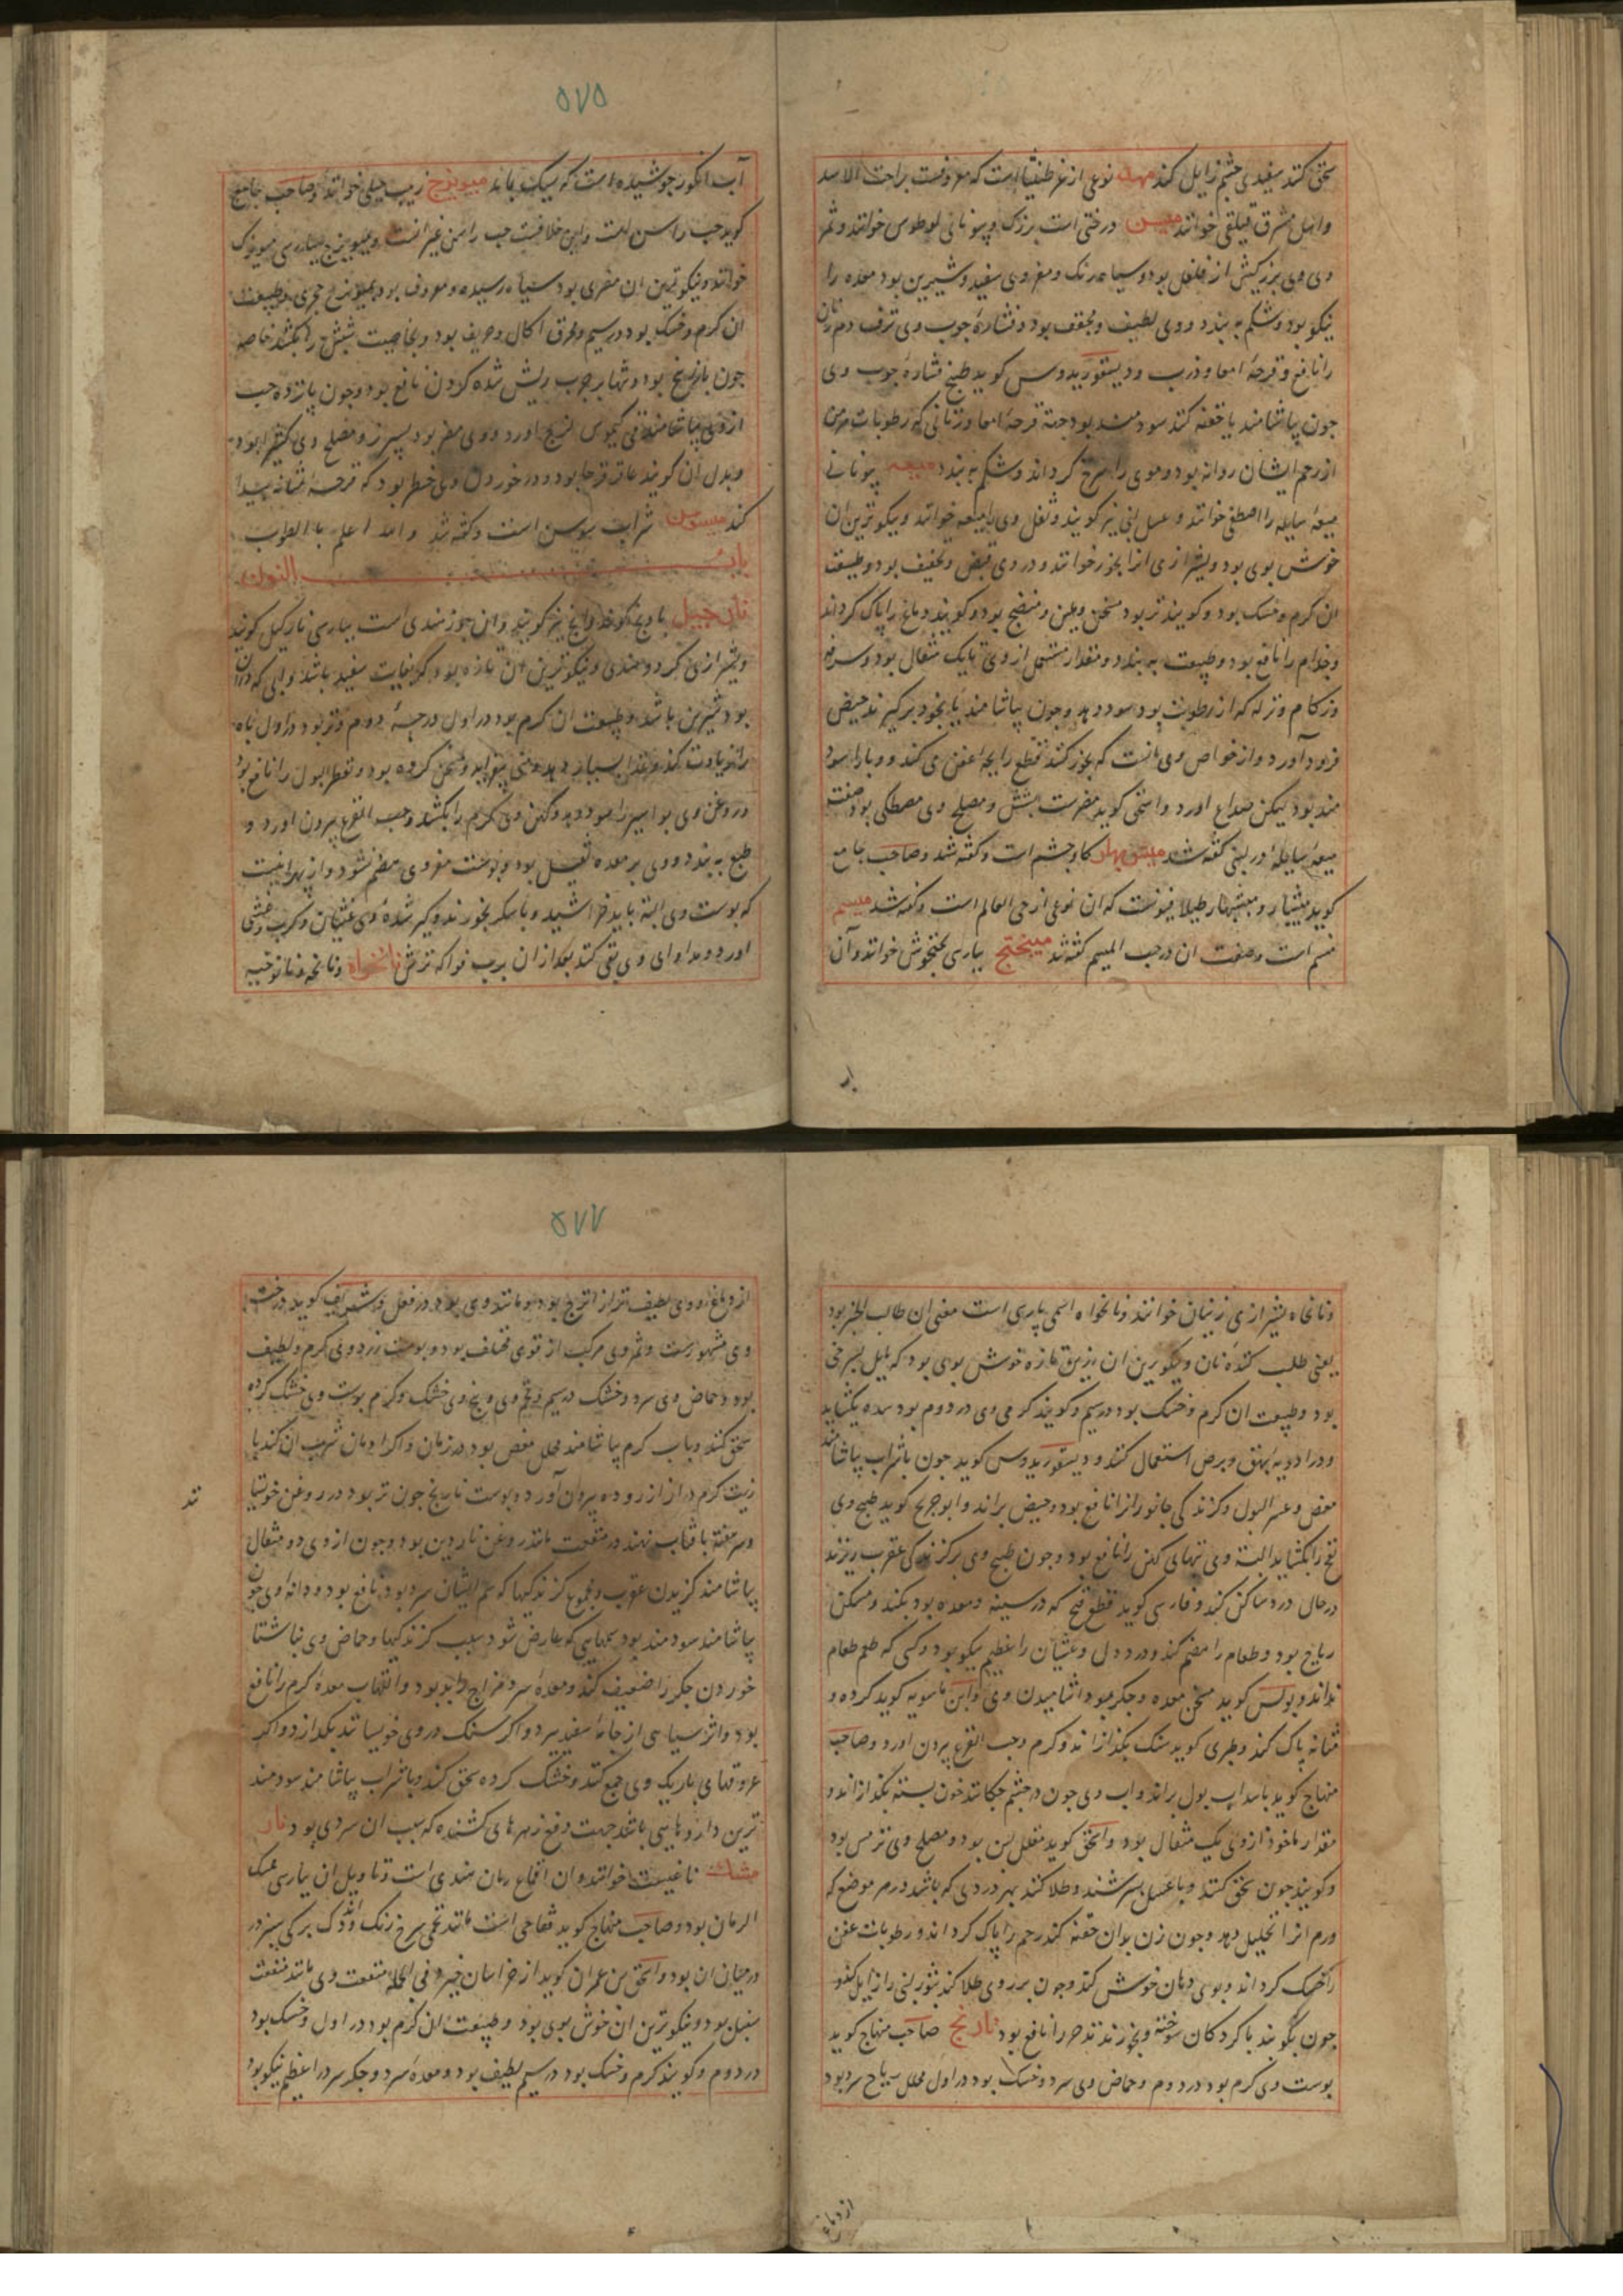 سحق کنند سفیدی چشم زایل کند مها نوعی از طنثیثا است که معروفست براحت الاسد
واهل مشرق قیلقی خوانند میس درختی است بزرک و بیونانی لوطوس خوانند و ثمر
وی وی بزرکتر از فلفل بود و سیاه رنک و مغز وی سفید و شیرین بود معده را
نیکو بود و شکم به بندد و وی لطیف و مجفف بود و نشاره چوب وی نزف دم زنان
را نافع و قرحه امعا و ذرب و دیسقوریدوس کوید طبیخ نشاره چوب وی
چون بیاشامند یا حقنه کنند سودمند بود جهة قرحه امعا و زنانی که رطوبات مزمن
از رحم ایشان روانه بود و موی را سرخ کرداند و شکم به بندد میعه بیونانی
میعه سایله را اصطفی خوانند و عسل لبنی نیز کویند و ثفل وی را میعه خوانند و نیکوترین ان
خوش بوی بود و بشیرازی انرا بخور خوانند و در وی قبض و تخفیف بود و طبیعت
ان کرم و خشک بود و کویند تر بود مسخن و ملین و منضج بود و کویند دماغ را پاک کرداند
و جذام را نافع بود و طبیعت به بندد و مقدار مستعمل از وی تا یک مثقال بود و سرفه
و زکام و نزله که از رطوبت بود سود دهد و چون بیاشامند یا بخود برکیرند حیض
فرود آورد و از خواص وی انست که بخور کنند قطع رایحه اعفن می کند و وبا را سود
مند بود لیکن صداع اورد و اسحق کوید مضرست بشش و مصلح وی مصطکی بود صفت
میعه سایله در لبنی کفته شد میش بهار کاوچشم است و کفته شد و صاحب جامع
کوید میشیار و میشبهار طیلافیونست که ان نوعی از حی العالم است و کفته شد میسم
نسم است و صفت ان در حب المیسم کفته شد میبختج بپارسی پختجوش خوانند و آن
ار
۵۷۵
آب انکور جوشیده است که سیک بماند میویزج زبیب جبلی خوانند و صاحب جامع
کوید حب راسن است و این خلافست حب راسن غیر انست و میویزج بپارسی مویزک
خوانند و نیکوترین ان مصری بود سیاه رسیده و معروف بود بمیویزج حجری و طبیعت
ان کرم و خشک بود در سیم و محرق اکال و حریف بود و بخاصیت شپش را بکشد خاصه
چون با زرنیخ بود و تنها بر جرب ریش شده کردن نافع بود و چون پانزده حب
از وی بیاشامند قی کیموس لزج اورد و وی مضر بود بسپرز و مصلح وی کثیرا بود
و بدل ان کویند عاقرقرحا بود و در خوردن وی خطر بود که قرحه مثانه پیدا
کند میسوسن شراب سوسن است و کفته شد و الله اعلم بالصواب
باب النون
نارجیل بادنج کوید و انج نیز کویند و ان جوز هندی است بپارسی نارکیل کویند
و بشیرازی کردو هندی و نیکوترین ان تازه بود که بغایت سفید باشد و ابی که در ان
بود شیرین باشد و طبیعت ان کرم بود در اول درجه دوم و تر بود در اول باه
را زیادت کند و غذا بسیار دهد و منی بیفزاید و مسخن کرده بود و تقطیر البول را نافع بود
و روغن وی بواسیر را سود دهد و کهن وی کرم را بکشد و حب القرع بیرون اورد و
طبع به بندد و وی بر معده ثقیل بود و پوست مغز وی هضم نشود و از بهر انیست
که پوست وی البته باید خراشید و با شکر بخورند و کهن شده وی غثیان و کرب و غشی
اورد و مداوای وی بقی کنند بعد از ان برب فواکه ترش نانخواه و نانخه و نانوخیه
و نانخاه بشیرازی زنیان خوانند و نانخواه اسمی پارسی است معنی ان طالب الخبز بود
یعنی طلب کننده نان و نیکوترین ان زین تازه خوش بوی بود که مایل بسرخی
بود و طبیعت ان کرم و خشک بود در سیم و کویند کرمی وی در دوم بود سده بکشاید
و در ادویه بهق و برص استعمال کنند و دیسقوریدوس کوید چون باشراب بیاشامند
مغص و عسر البول و کزندکی جانوران را نافع بود و حیض براند و ابو جریح کوید طبیخ وی
نفخ را بکشاید البته وی تبهای کهن را نافع بود و چون طبیخ وی بر کزندکی عقرب ریزند
درحال درد ساکن کند و فارسی کوید قطع قیح که در سینه و معده بود بکند و مسکن
ریاح بود و طعام را هضم کند و درد دل و غثیان را عظیم نیکو بود و کسی که طعم طعام
نداند و یولس کوید مسخن معده و جکر بود اشامیدن وی و ابن ماسویه کوید کرده و
مثانه پاک کند و طبری کوید سنک بکدازاند و کرم و حب القرع بیرون اورد و صاحب
منهاج کوید باسداب بول براند و اب وی چون در چشم چکانند خون بسته بکدازاند و
مقدار ماخوذ از وی یک مثقال بود و اسحق کوید مقلل لبن بود و مصلح وی ترمس بود
و کویند چون سحق کنند و با عسل بسرشند و طلا کنند بهر دردی که باشد در هر موضع که
ورم انرا تحلیل دهد و چون زن بدان حقنه کند رحم را پاک کرداند و رطوبات عفن
را خشک کرداند و بوی دهان خوش کند و چون بر روی طلا کنند بثور لبنی را زایل کند و
چون بکوبند با کردکان سوخته و بخورند تندحر را نافع بود نارنج صاحب منهاج کوید
پوست وی کرم بود در دوم و حماض وی سرد و خشک بود در اول محلل ریاح سرد بود
از دماغ
۵۷۷
از دماغ و وی لطیف تر از اترج بود و مانند وی بود در فعل و شریف کوید درخت
وی مشهورست و ثمر وی مرکب از قوی مختلف بود و پوست زرد وی کرم و لطیف
بود و حماض وی سرد و خشک در سیم و تخم وی و بیخ وی خشک و کرم پوست وی خشک کرده
سحق کنند و باب کرم بیاشامند محلل مغص بود در زمان و اکر ادمان شرب ان کند با
زیت کرم دراز از روده بیرون آورد و پوست نارنج چون تر بود در روغن خوسیانند
و سه هفته بافتاب نهند در منفعت مانند روغن ناردین بود و چون از وی دو مثقال
بیاشامند کزیدن عقرب و مجموع کزندکیها که سم ایشان سرد بود نافع بود و دانه وی چون
بیاشامند سودمند بود بجهایی که عارض شود بسبب کزندکیها و حماض وی بناشتا
خوردن جکر را ضعیف کند و معده سرد مزاج را بد بود و التهاب معده کرم را نافع
بود و اثر سیاهی از جامه سفید ببرد و اکر سنک در وی خویسانند بکدازد و اکر
عروقهای باریک وی جمع کنند و خشک کرده سحق کنند و باشراب بیاشامند سودمند
ترین داروهایی باشد جهت دفع زهرهای کشنده که سبب ان سردی بود نار
مشک ناغیست خوانند و ان اقماع رمان هندی است و تاویل ان بپارسی مسک
الرمان بود و صاحب منهاج کوید قفاحی است مانند تخمی سرخ رنک و اندک برکی سبز در
درمیان ان بود و اسحق بن عمران کوید از خراسان خیزد و فی الجمله منفعت وی مانند منفعت
سنبل بود و نیکوترین ان خوش بوی بود و طبیعت ان کرم بود در اول و خشک بود
در دوم و کویند کرم و خشک بود در سیم لطیف بود و معده سرد و جکر سرد را عظیم نیکو بود
تد